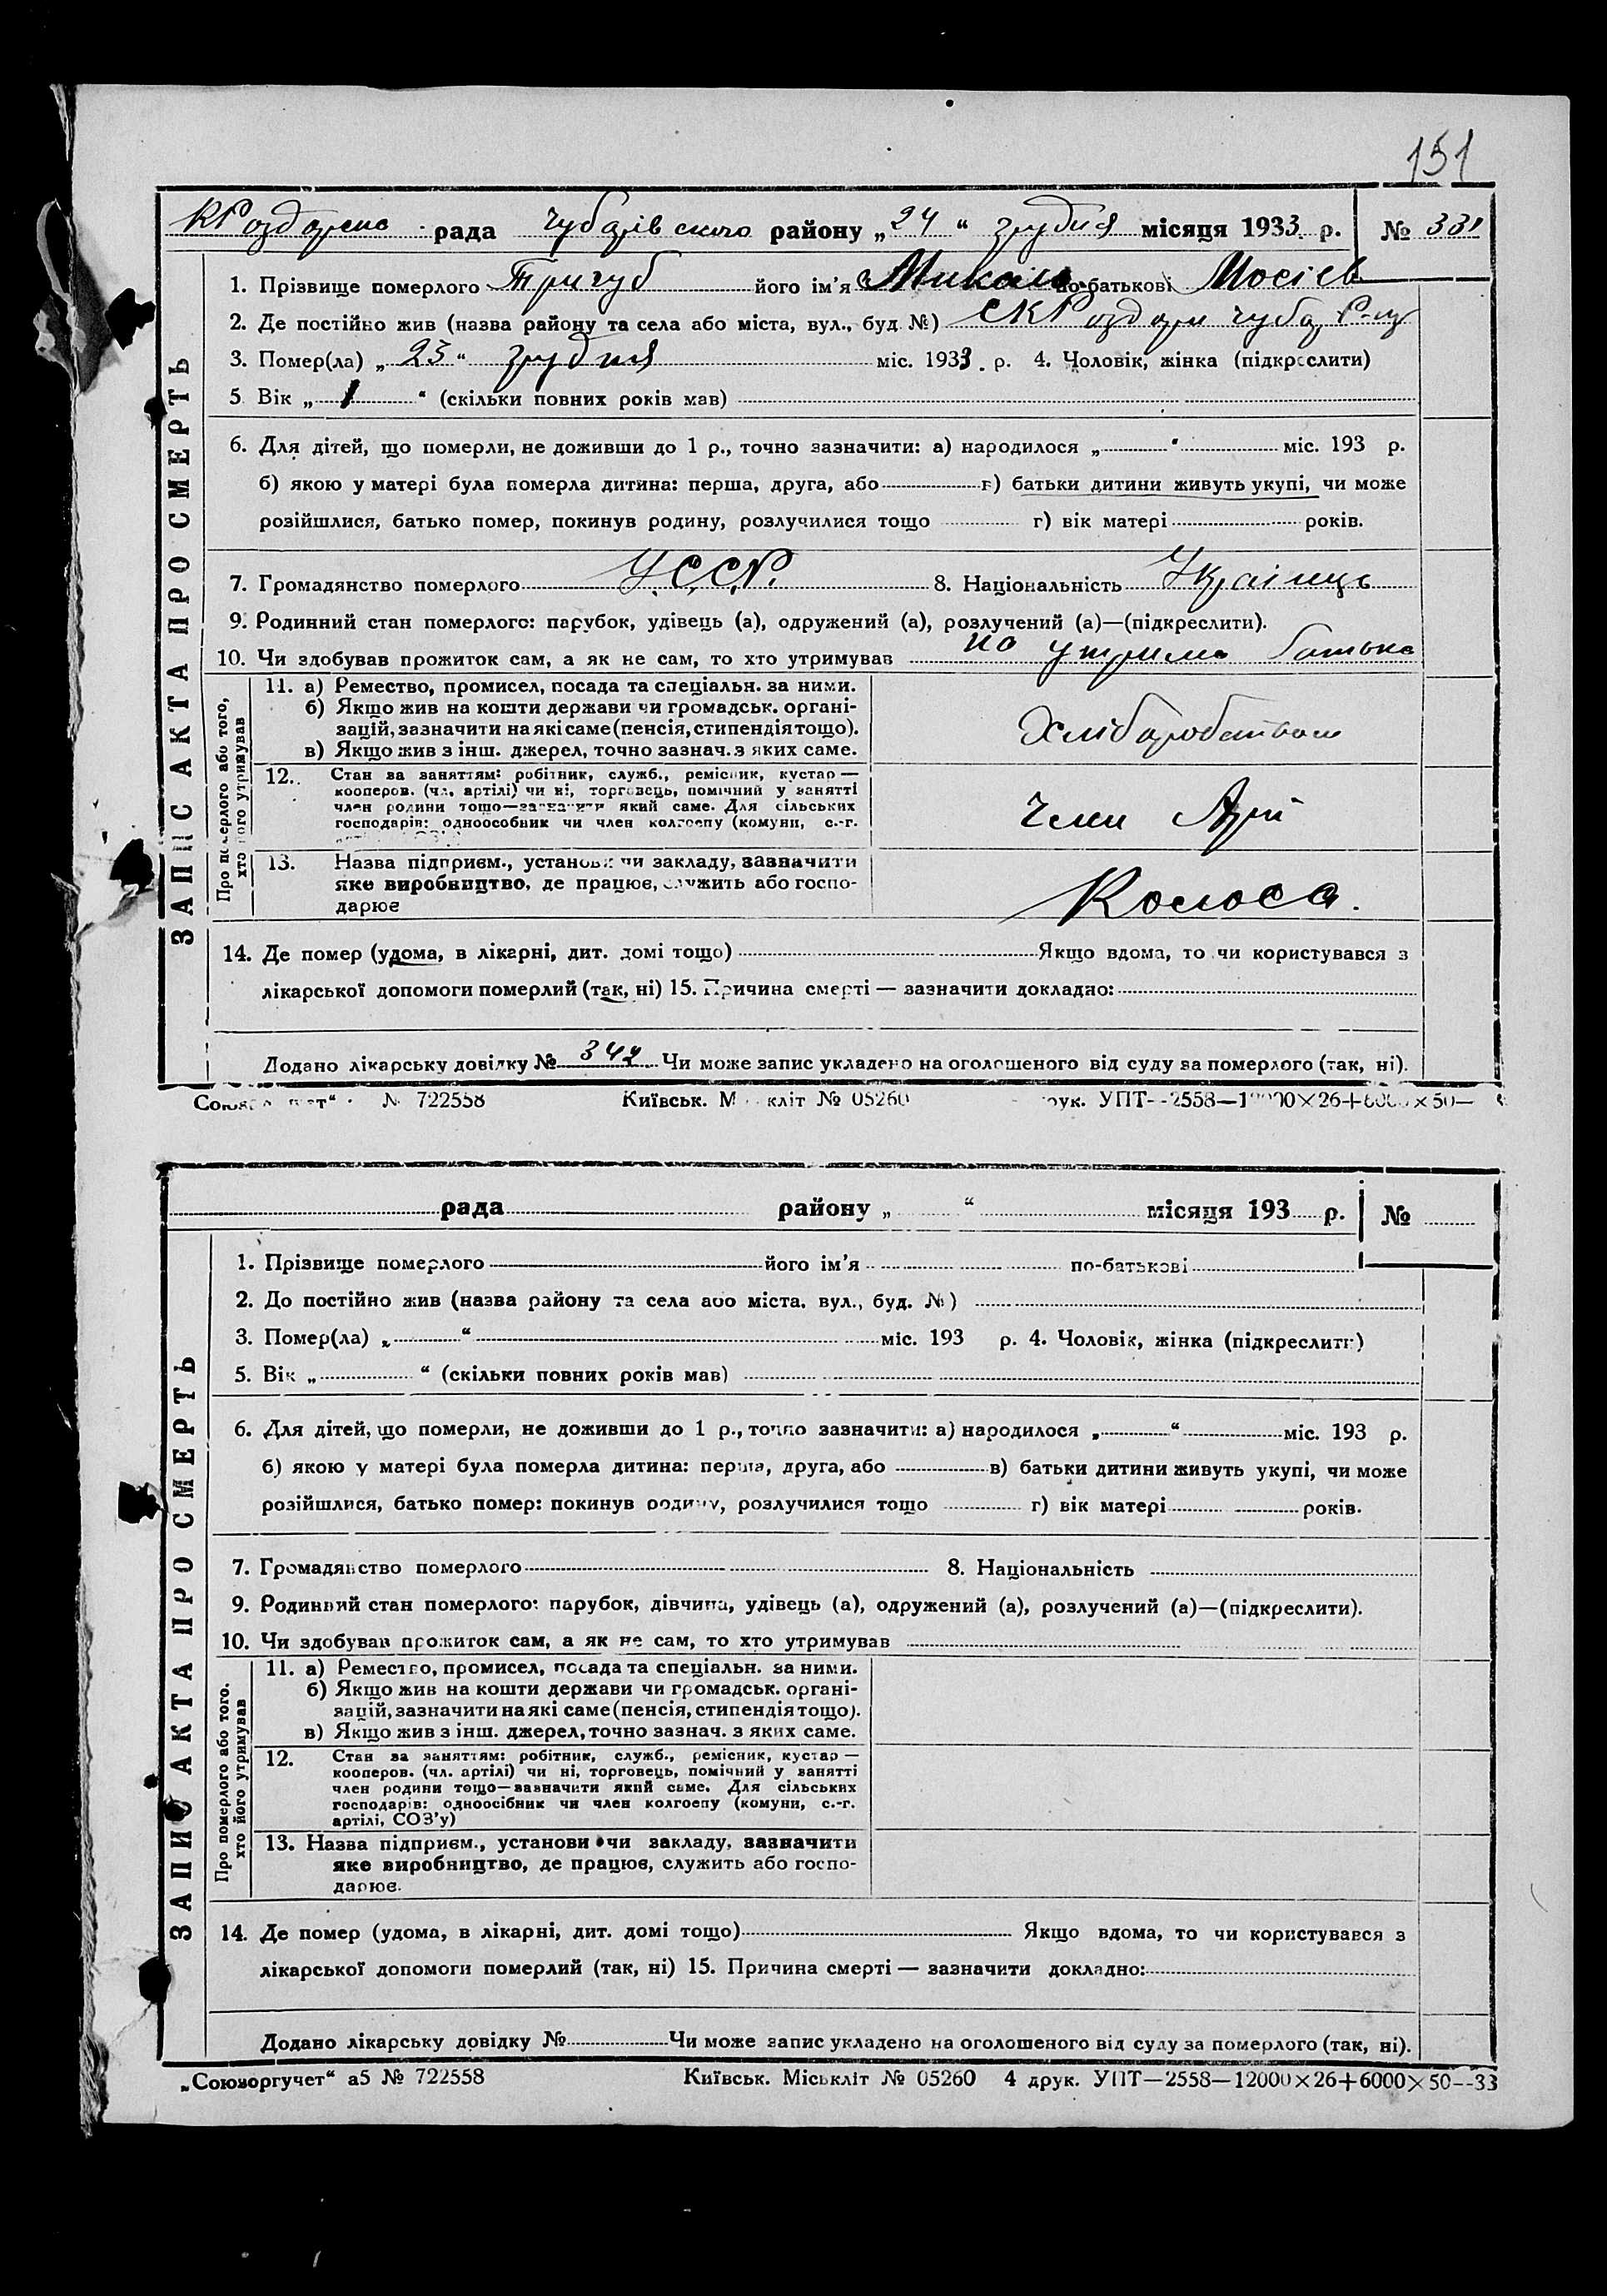 151
КРоздорська рада Чубарівського району „24“ грудня місяця 1933 р. № 331
ЗАПИС АКТА ПРО СМЕРТЬ
1. Прізвище померлого Тригуб його ім’я Микола по-батькові Мосієв
2. Де постійно жив (назва району та села або міста, вул., буд №) С КРоздори Чубар Р-ну
3. Помер(ла) „23“ грудня міс. 1933. р. 4. Чоловік, жінка (підкреслити)
5 Вік „1“ (скільки повних років мав)
6. Для дітей, що померли, не доживши до 1 р., точно зазначити: а) народилося „ “ міс. 193 р.
б) якою у матері була померла дитина: перша, друга, або в) батьки дитини живуть укупі, чи може
розійшлися, батько помер, покинув родину, розлучилися тощо г) вік матері років.
7. Громадянство померлого У.С.С.Р. 8. Національність Українць
9. Родинний стан померлого: парубок, удівець (а), одружений (а), розлучений (а)—(підкреслити).
10. Чи здобував прожиток сам, а як не сам, то хто утримував на утрима батька
Про померлого або того,
хто його утримував
11. а) Ремество, промисел, посада та спеціальн. за ними.
б) Якщо жив на кошти держави чи громадськ. органі-
зацій, зазначити на які саме (пенсія, стипендія тощо).
в) Якщо жив з інш. джерел, точно зазнач. з яких саме.
12. Стан за заняттям: робітник, служб., ремісник, кустар —
кооперов. (чл. артілі) чи ні, торговець, помічний у занятті
член родини тощо—зазначити який саме. Для сільських
господарів: одноосібник чи член колгоспу (комуни, с.-г.
Член Арті
13. Назва підприєм., установи чи закладу, зазначити
яке виробництво, де працює, служить або госпо-
дарює
Колоса.
14. Де помер (удома, в лікарні, дит. домі тощо) Якщо вдома, то чи користувався з
лікарської допомоги померлий (так, ні) 15. Причина смерті — зазначити докладно:
Додано лікарську довідку № 342 Чи може запис укладено на оголошеного від суду за померлого (так, ні).
№ 722558 Київськ. Міськліт № 05260 друк. УПТ—2558—12000×26+6000×50—
рада району „ “ місяця 193 р. №
ЗАПИС АКТА ПРО СМЕРТЬ
1. Прізвище померлого його ім’я по-батькові
2. До постійно жив (назва району та села або міста, вул., буд. №)
3. Помер(ла) „ “ міс. 193 р. 4. Чоловік, жінка (підкреслити)
5. Вік „ “ (скільки повних років мав)
6. Для дітей, що померли, не доживши до 1 р., точно зазначити: а) народилося „ “ міс. 193 р.
б) якою у матері була померла дитина: перша, друга, або в) батьки дитини живуть укупі, чи може
розійшлися, батько помер: покинув родину, розлучилися тощо г) вік матері років.
7. Громадянство померлого 8. Національність
9. Родинний стан померлого: парубок, дівчина, удівець (а), одружений (а), розлучений (а)—(підкреслити).
10. Чи здобував прожиток сам, а як не сам, то хто утримував
Про померлого або того.
хто його утримував
11. а) Ремество, промисел, посада та спеціальн. за ними.
б) Якщо жив на кошти держави чи громадськ. органі-
зацій, зазначити на які саме (пенсія, стипендія тощо).
в) Якщо жив з інш. джерел, точно зазнач. з яких саме.
12. Стан за заняттям: робітник, служб., ремісник, кустар —
кооперов. (чл. артілі) чи ні, торговець, помічний у занятті
член родини тощо—зазначити який саме. Для сільських
господарів: одноосібник чи член колгоспу (комуни, с.-г.
артілі, СОЗ’у)
13. Назва підприєм., установи чи закладу, зазначити
яке виробництво, де працює, служить або госпо-
дарює.
14. Де помер (удома, в лікарні, дит. домі тощо) Якщо вдома, то чи користувався з
лікарської допомоги померлий (так, ні) 15. Причина смерті — зазначити докладно:
Додано лікарську довідку № Чи може запис укладено на оголошеного від суду за померлого (так, ні).
„Союзоргучет“ а5 № 722558 Київськ. Міськліт № 05260 4 друк. УПТ—2558—12000×26+6000×50--33